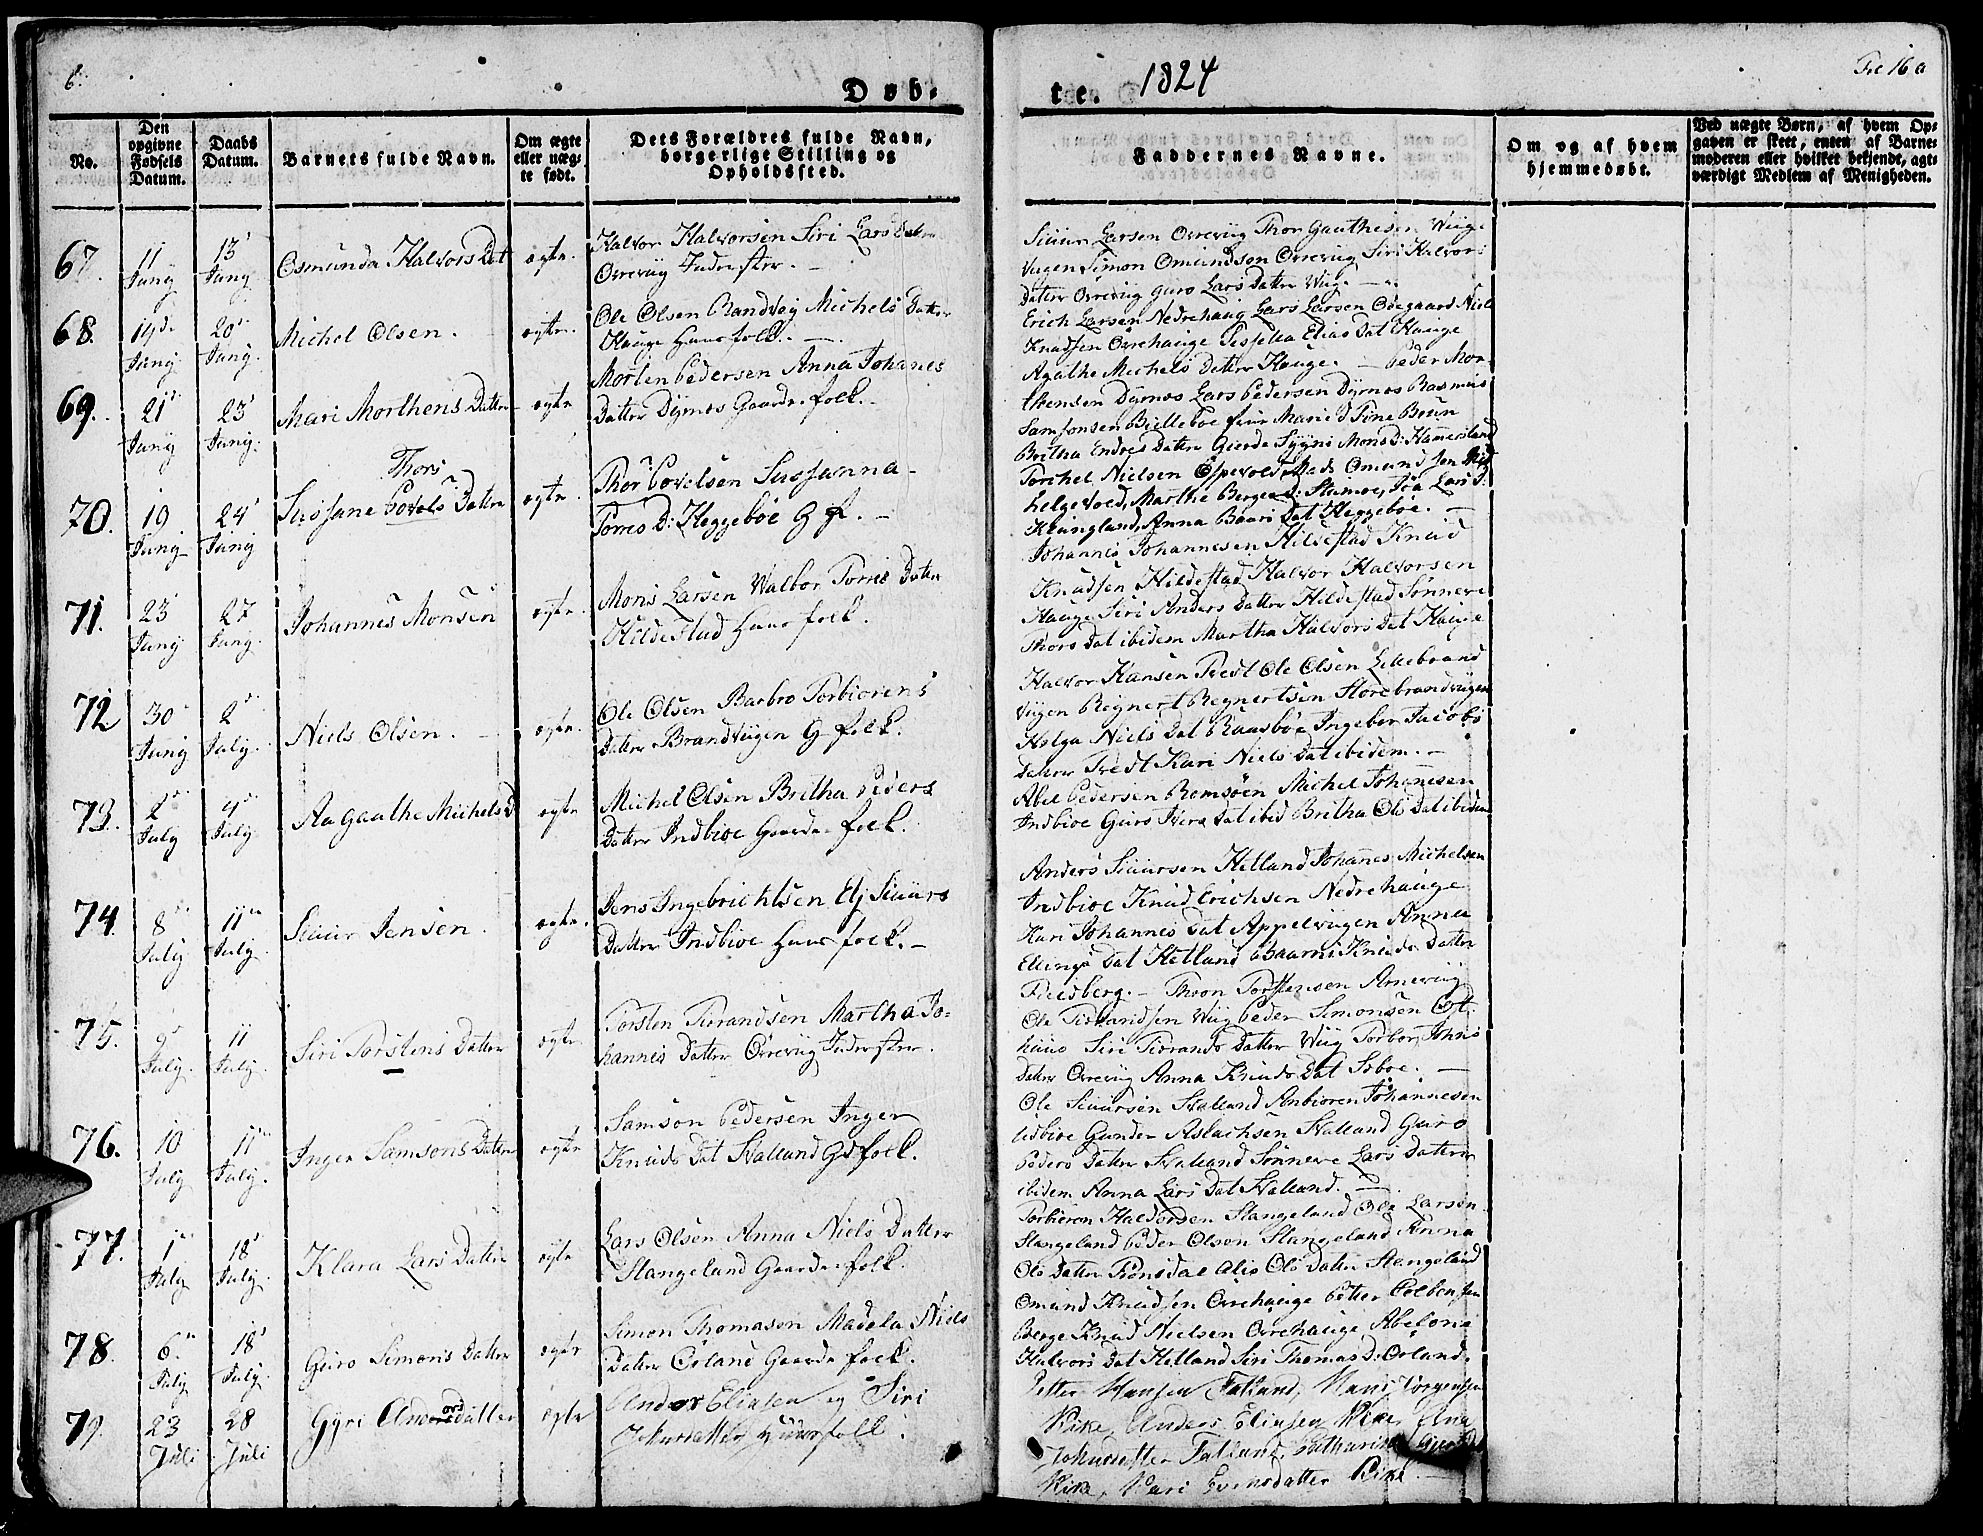 6.
Døb-
te. 1824
No.
Den opgivne Fødsels Datum.
Daabs Datum.
Barnets fulde Navn.
Om ægte eller uæg- te født.
Dets Forældres fulde Navn, borgerlige Stilling og Opholdssted.
Faddernes Navne.
Om og af hvem hjemmedøbt.
Ved uægte Børn, af hvem Op- gaven er skeet, enten af Barne- moderen eller hvilket bekjendt, agt- værdigt Medlem af Menigheden.
67. 11 Juny 13 Juny Osmunda Halvors Dat ægte.
Halvor Halvorsen Siri Lars Datter
Orreviig Inderster.
Siuur Larsen Orreviig Thor Gauthesen Wiige
Vugen Simon Omundson Orreviig Siri Halvors
Datter Orreviig Guro Lars Datter Wiig.
68. 19 Juny 20 Juny Michel Olsen. ægte.
Ole Olsen Randvag Michels Datter
Hauge Huusfolk.
Erich Larsen Nedrehaug Lars Larsen Odegaard Niels
Knudsen Orrehauge Sissella Elias Dat Hauge
Agathe Michels Datter Hauge. Peder Mor-
69. 21 Juny 23 Juny. Mari Morthens Datter ægte
Morten Pedersen Anna Johanes
Datter Dyrnes Gaardefolk.
thensen Dyrnes Lars Pedersen Dyrnes Rasmus
Samsonsen Bielleboe Mari Brun
Britha Endres Datter Gierde Mons D: Hamersland
70. 19 Juny 24 Juny
Thors
Sussane Povels Datter ægte.
Thor Povelsen Sussanna
Torres D: Heggeböe G f.
Torchel Nielsen Espevold Mads Omundsen
Helgevold, Marthe Berges D: Lars D.
Klungland, Anna Baars Dat Heggeböe.
71. 23 Juny 27 Juny. Johannes Monsen ægte.
Mons Larsen Walbor Torris Datter
Hildestad Huusfolk.
Johannes Johannesen Hildestad Knud
Knudsen Hildestad Halvor Halvorsen
Hauge Siri Anders Datter Hildestad Sønneve
Thors Dat ibidem Martha Halvors Dat Hauge
72 30 Juny 2 July. Niels Olsen. ægte.
Ole Olsen Barbro Torbiorens
Datter Brandviigen G folk.
Halvor Hansen Tredt Ole Olsen Lillebrand
viigen Regnert Regnertsen Storebrandviigen
Helga Niels Dat Raasböe Ingebor Jacobs
Datter Tredt Kari Niels Dat ibidem.
73. 2 July 4 July. Aagaathe Michels D ægte
Michel Olsen Britha Peders
Datter Indbioe Gaardefolk.
Abel Pedersen Romsöen Michel Johanesen
Indbioe Guro Ivers Dat ibid Britha Ols Dat ibidem
74. 8 July 11 July. Siuur Jensen. ægte.
Jens Ingebrichtsen Elj Siuurs
Datter Indbioe Huusfolk.
Anders Siuursen Hetland Johanes Michelsen
Indbioe Knud Erichsen Nedrehauge
Kari Johannes Dat Appelviigen Anna
Ellings Dat Hetland Baarni Knuds Datter
75. 9 July. 11 July. Siri Torstens Datter ægte
Torsten Tiorandsen Martha Jo-
hannes Datter Orreviig Inderster.
Thron Torstensen Arneviig
Ole Tiorandsen Wiig Peder Simonsen Ost-
huus Siri Tiorands Datter Wiig Torbor Johns
Datter Orreviig Anna Knuds Dat Isboe.
76. 10 July 11 July. Inger Samsons Datter ægte
Samson Pedersen Inger
Knuds Dat Svalland Gdfolk.
Ole Siuursen Svalland Anbioren Johannesen
Udbioe Gunder Aslachsen Svalland Guro
Peders Datter Svalland Sønneve Lars Datter
ibidem Anna Lars Dat Svalland.
77. 1 July 18 July. Klara Lars Datter ægte
Lars Olsen Anna Niels Datter
Stangeland Gaardefolk.
Torbioren Haldorsen Stangeland Ole Larsen
Stangeland Peder Olsen Stangeland Anna
Ols Datter Tronsdal Alis Ols Datter Stangeland
78. 6 July 18 July. Guro Simons Datter ægte
Simon Thomason Madela Niels
Datter Orland Gaardefolk.
Omund Knudsen Orrehauge Petter Colbensen
Berge Knud Nielsen Orrehauge Abelone
Halvors Dat Hetland Siri Thomas D: Orland.
79. 23 Juli 28 Juli Gyri Andersdatter ægte
Anders Eliasen og Siri
Johnsdatter Huusfolk.
Petter Hansen Fatland, Hans Jörgensen
Vike, Anders Eliasen Vike, Ana
Johnsdatter Fatland, Catharina
Vike, Kari Svensdatter Vike